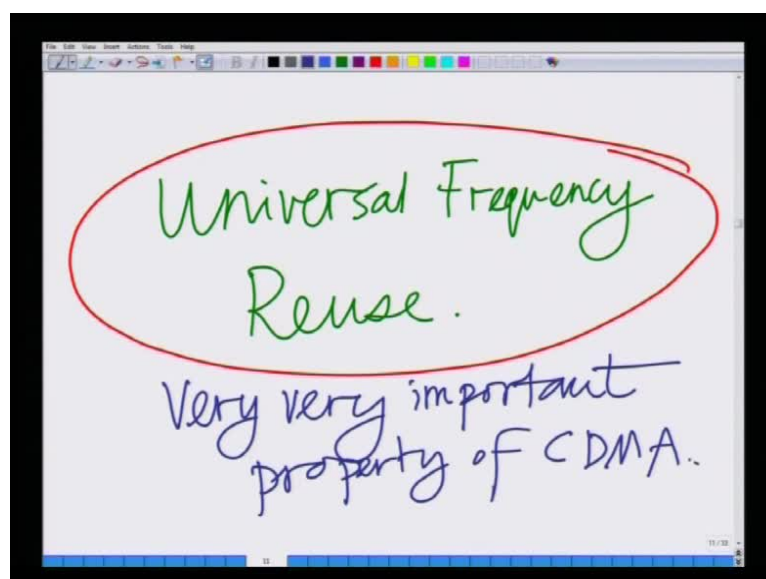 File Edit View Insert Actions Tools Help
Universal Frequency
Reuse.
Very very important
property of CDMA.
11 / 12
11